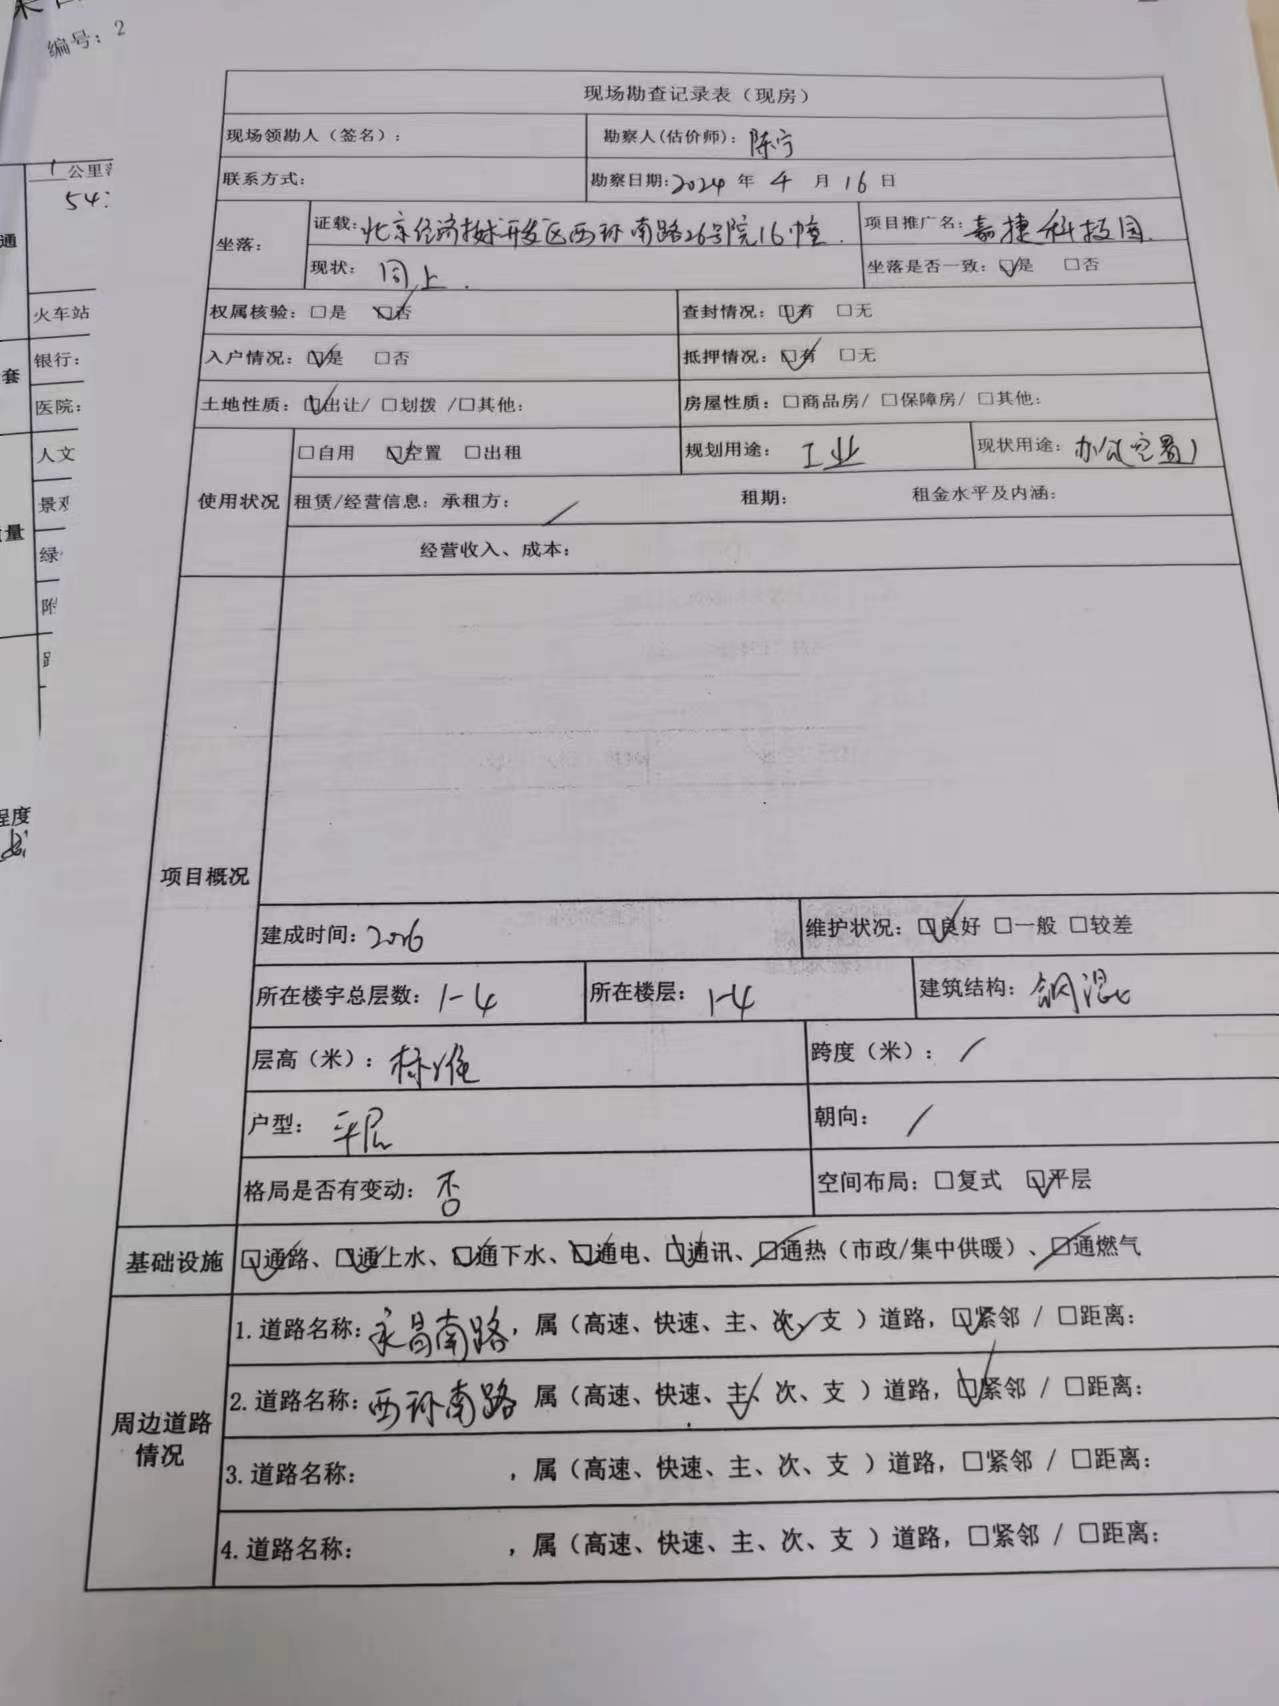 编号：2
现场勘查记录表（现房）
现场领勘人（签名）： 勘察人(估价师)：陈宁
联系方式： 勘察日期：2024 年 4 月 16 日
坐落： 证载：北京经济技术开发区西环南路26号院16幢. 项目推广名：嘉捷科技园.
现状： 同上. 坐落是否一致：☑是 □否
权属核验：□是 ☑否 查封情况：☑有 □无
入户情况：☑是 □否 抵押情况：☑有 □无
土地性质：☑出让/ □划拨 /□其他： 房屋性质：□商品房/ □保障房/ □其他：
使用状况 □自用 ☑空置 □出租 规划用途： 工业 现状用途：办公(空置)
租赁/经营信息：承租方： / 租期： 租金水平及内涵：
经营收入、成本：
项目概况
建成时间：2006 维护状况：☑良好 □一般 □较差
所在楼宇总层数：1-4 所在楼层：1-4 建筑结构：钢混
层高（米）：标准 跨度（米）：/
户型： 平层 朝向： /
格局是否有变动：否 空间布局：□复式 ☑平层
基础设施 ☑通路、☑通上水、☑通下水、☑通电、☑通讯、☑通热（市政/集中供暖）、☑通燃气
周边道路情况
1.道路名称：永昌南路，属（高速、快速、主、次✓支 ）道路，☑紧邻 / □距离：
2.道路名称：西环南路 属（高速、快速、主✓、次、支 ）道路，☑紧邻 / □距离：
3.道路名称： ，属（高速、快速、主、次、支 ）道路，□紧邻 / □距离：
4.道路名称： ，属（高速、快速、主、次、支 ）道路，□紧邻 / □距离：
1 公里
54
通
火车站
套 银行：
医院：
人文
景观
量
绿
附
程度